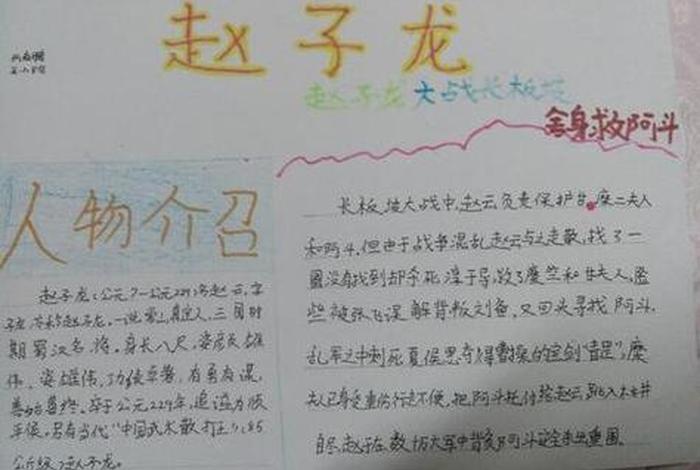 赵子龙
赵子龙大战长板坡
舍身救阿斗
人物介召
赵子龙(公元?一公元229)名赵云,字
子龙
人,三国时
期蜀汉名将。身长八尺,姿彦长雄
伟、姿雄伟,功绩卓著,有勇有谋,
善始善终。卒于公元229年,追谥为顺
平侯。另有当代"中国武术散打王",85
公斤级,赵子龙。
长板坡大战中,赵云负责保护甘,糜二夫人
和阿斗,但由于战争混乱赵云与之走散,找了一
圈没有找到却杀死淳于导,救了糜竺和甘夫人,险
些被张飞误解背叛刘备,又回头寻找阿斗,
乱军之中刺死夏侯恩夺得曹操的宝剑"青昷",糜
夫人已身受重伤行走不便,把阿斗托付给赵云,跳入木井
自尽赵子在数切大军中背负阿斗重围。